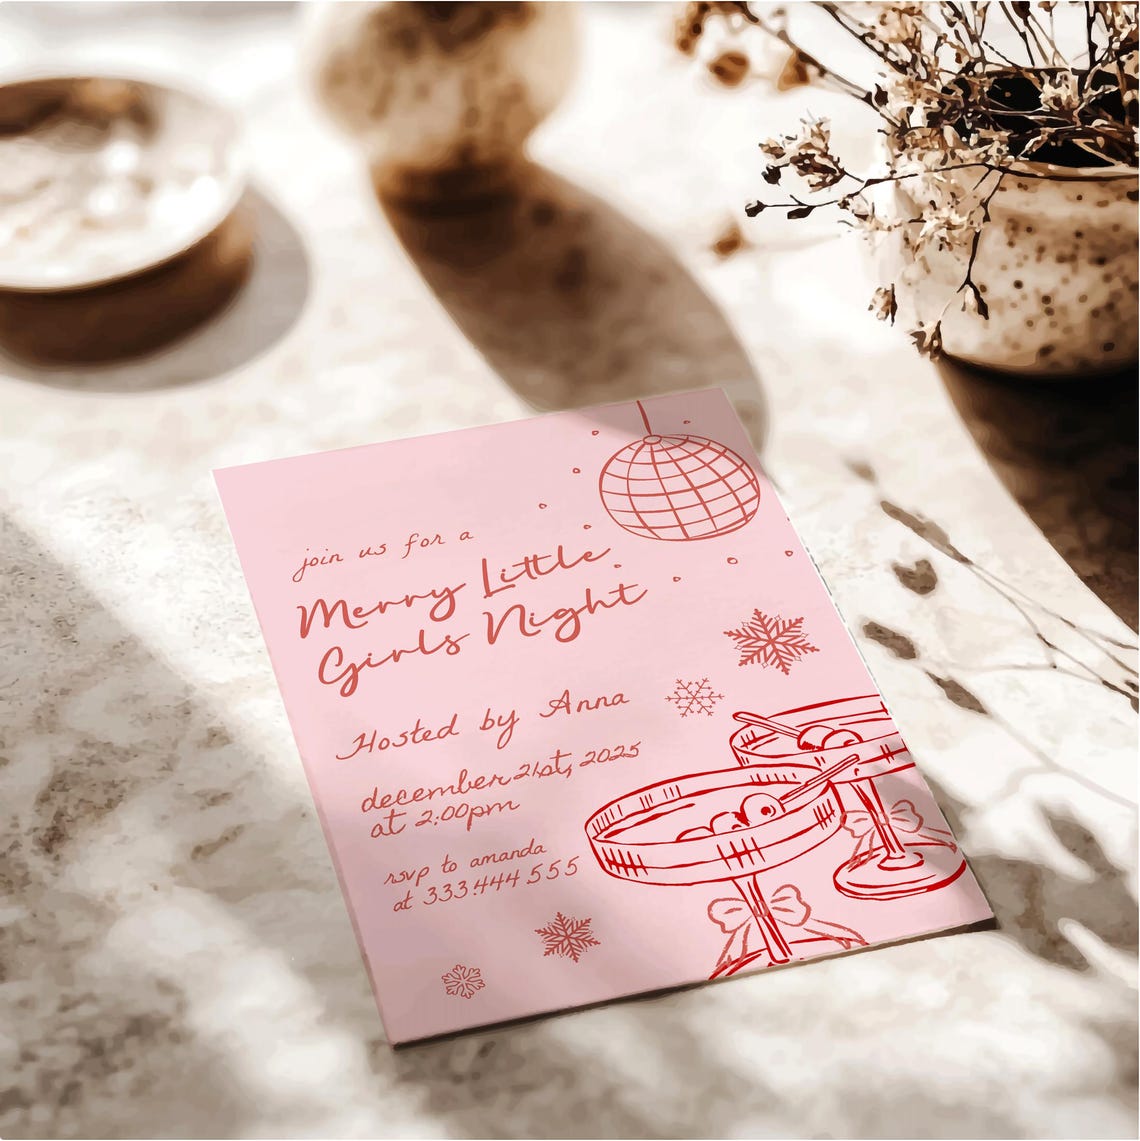 join us for a
Merry Little
Girls Night
Hosted by Anna
december 21st, 2025
at 2:00pm
rsvp to amanda
at 333 444 555